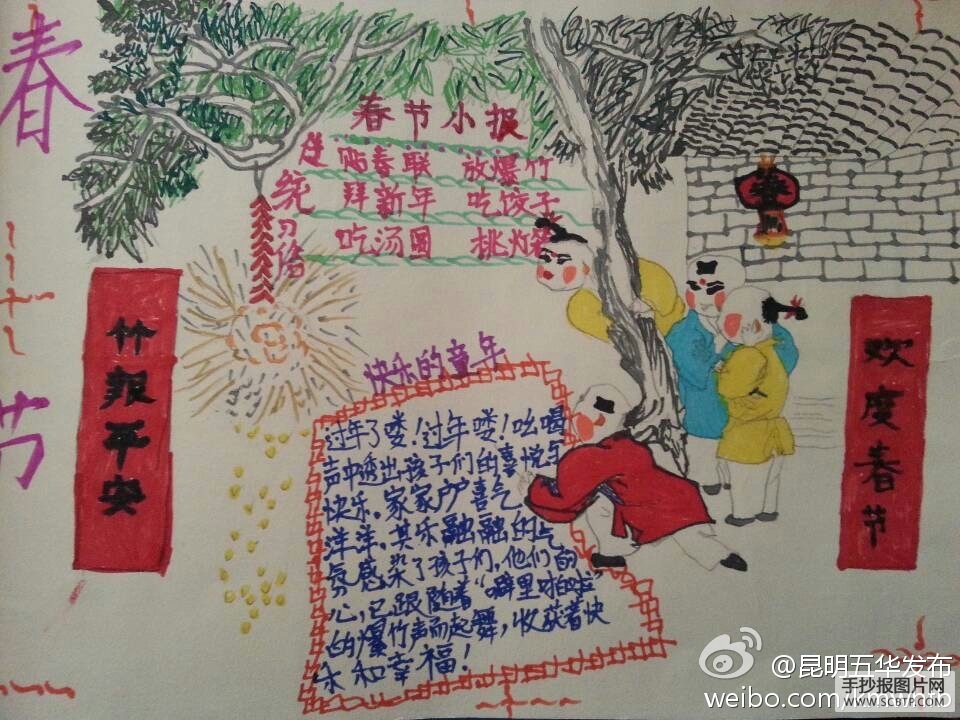 春节
春节小报
传统习俗
贴春联 放爆竹
拜新年 吃饺子
吃汤圆 挑灯笼
竹报平安
欢度春节
快乐的童年
过年了喽!过年喽!吆喝
声中透出孩子们的喜悦与
快乐。家家户户喜气
洋洋,其乐融融的气
氛感染了孩子们,他们的
心,已跟随着“噼里啪啦”
的爆竹声而起舞,收获着快
乐和幸福!
@昆明五华发布
weibo.com/kmwhfb
手抄报图片网
WWW.SCBTP.COM